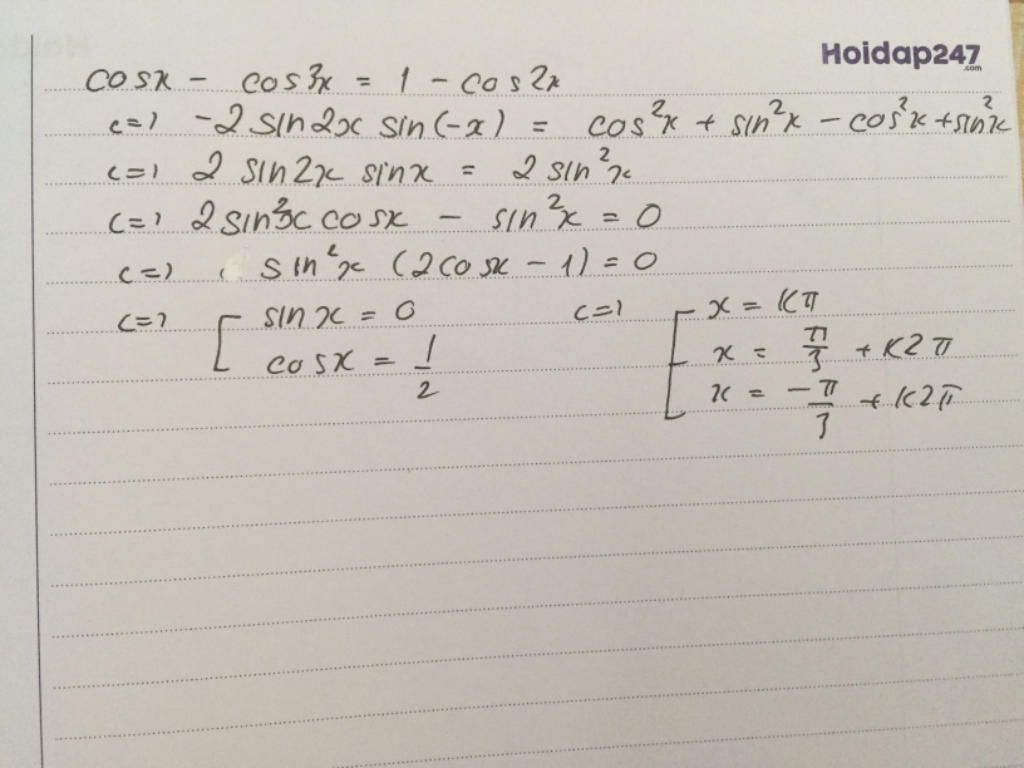 Hoidap247
.com
cosx - cos3x = 1 - cos2x
<=> -2 sin2x sin(-x) = cos²x + sin²x - cos²x + sin²x
<=> 2 sin2x sinx = 2 sin²x
<=> 2 sin²x cosx - sin²x = 0
<=> sin²x (2cosx - 1) = 0
<=> [ sinx = 0 <=> [ x = kπ
cosx = 1/2 x = π/3 + k2π
x = -π/3 + k2π